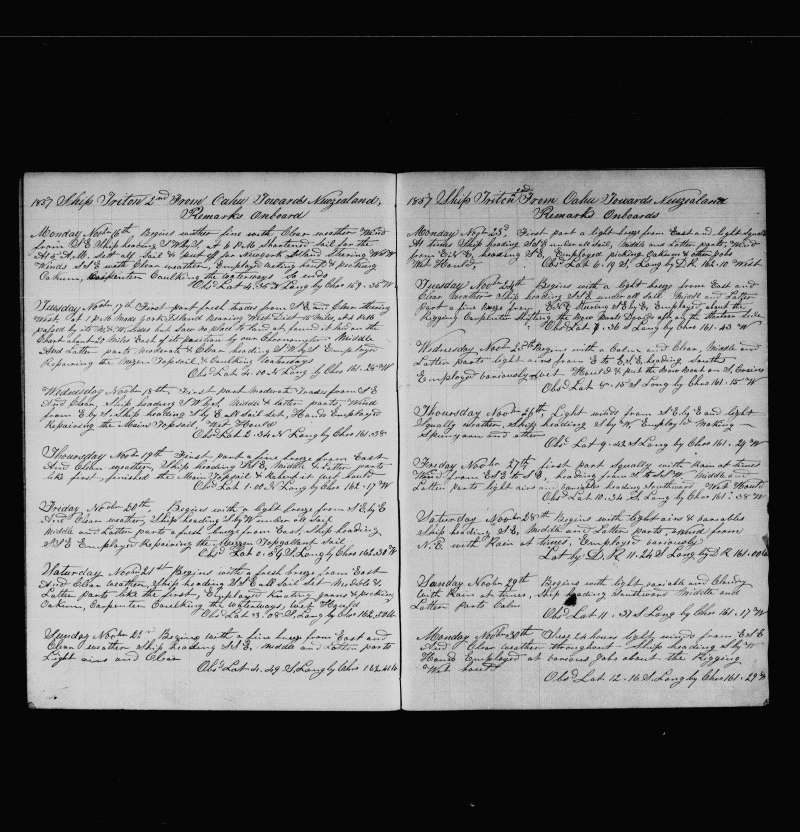 1857 Ship Triton 2nd From Oahu Towards Newzealand,
Remarks Onboard
Monday Novbr 16th Begins with fine with Clear weather Wind
from S E Ship heading S W by S. At 6 P.M. Shortened Sail for the
At 5 A.M. Sett all Sail & put off for Newyork Island Steering W
Winds S E with Clear weather, Employed making and picking
Oakum, Carpenter Caulking So ends
Obsd Lat 4.35 N Long by Chro 159.36 W
Tuesday Novbr 17th First part fresh trades from S E and Clear Steering
West at 1 P.M. Made york Island bearing West Dist 15 miles, at 5 P.M.
passed by its N & W. Sides but Saw no place to land at, found it laid on the
Chart about 25 Miles East of its position by our Chronometer Middle
And Latter parts moderate & Clear heading S W by S Employed
Repairing the Mizen Topsail & Caulking Waterways
Obsd Lat 4.00 N Long by Chro 161.28 W
Wednesday Novbr 18th First part moderate Trades from S E
And Clear, Ship heading S W by S, Middle & latter parts, Wind
from E by S, Ship heading S by E all Sail Set, Hands Employed
Repairing the Main Topsail, Wet Hould
Obsd Lat 2.34 N Long by Chro 161.38
Thoursday Novbr 19th First part a fine breeze from East
And Clear weather, Ship heading S S E, Middle & Latter parts
like first, finished the Main Topsail &
Obsd Lat 1.00 N Long by Chro 162.17 W
Friday Novbr 20th Begins with a light breeze from S E by E
And Clear weather, Ship heading S by W under all Sail
Middle and Latter parts a fresh breeze from East, Ship heading
S S E Employed Repairing the Mizzen Topgallant Sail
Obsd Lat 0.54 S Long by Chro 162.30 W
Saturday Novbr 21st Begins with a fresh breeze from East
And Clear Weather, Ship heading S S E all Sail Set Middle &
Latter parts like the first, Employed Knotting yarns & picking
Oakum, Carpenter Caulking the Waterways, Wet Hould
Obsd Lat 3.08 S, Long by Chro 162.50 W
Sunday Novbr 22nd Begins with a fine breeze from East and
Clear weather Ship heading S S E, Middle and Latter parts
Light airs and Clear
Obsd Lat 4.49 S, Long by Chro 162.41 W
1857 Ship Triton 2nd From Oahu Towards Newzealand
Remarks Onboards
Monday Novbr 23d First part a light breeze from East and light Squalls
At times Ship heading S S E under all Sail, Middle and Latter parts, Wind
from E N E, heading S E, Employed picking Oakum & other jobs
Wet Hould, Obsd Lat 6.19 S, Long by D.R. 162.10 West
Tuesday Novbr 24th Begins with a light breeze from East and
Clear weather Ship heading S S E under all sail Middle and Latter
Part a fine breeze from E N E Steering S E by E Employed about the
Rigging Carpenter Shifting the Bow Boat Davits aft, on the Starboard Side
Obsd Lat 7.36 S Long by Chro 161.43 W
Wednesday Novbr 25th Begins with a Calm and Clear, Middle and
Latter parts light airs from E to E S E heading South
Employed variously & wet Hould & put the Bow Boat on S, Cranes
Obsd Lat 8.15 S Long by Chro 161.15 W
Thoursday Novbr 26th, Light winds from S E by E and light
Squally weather, Ship heading S by W Employed Making
Spunyarn and other
Obsd Lat 9.42 S Long by Chro 161.29 W
Friday Novbr 27th first part Squally with Rain at times
Wind from E S E to S E, heading from S to S S W Middle and
Latter parts light airs and variable heading Southward Wet Hould
Obsd Lat 10.34 S, Long by Chro 161.38 W
Saturday Novbr 28th Begins with light airs & variables
Ship heading S E, Middle and Latter parts, wind from
N.E. with Rain at times, Employed variously
Lat by D.R. 11.24 S Long by D.R. 161.00 W
Sunday Novbr 29th Begins with light, variable and Cloudy
With Rain at times, Ship heading Southward Middle and
Latter parts Calm
Obsd Lat 11.37 S Long by Chro 161.17 W
Monday Novbr 30th These 24 hours light winds from E S E
And Clear weather throughout Ship heading S by W
Hands Employed at various Jobs about the Rigging
Wet hould
Obsd Lat 12.16 S, Long by Chro 161.29 W